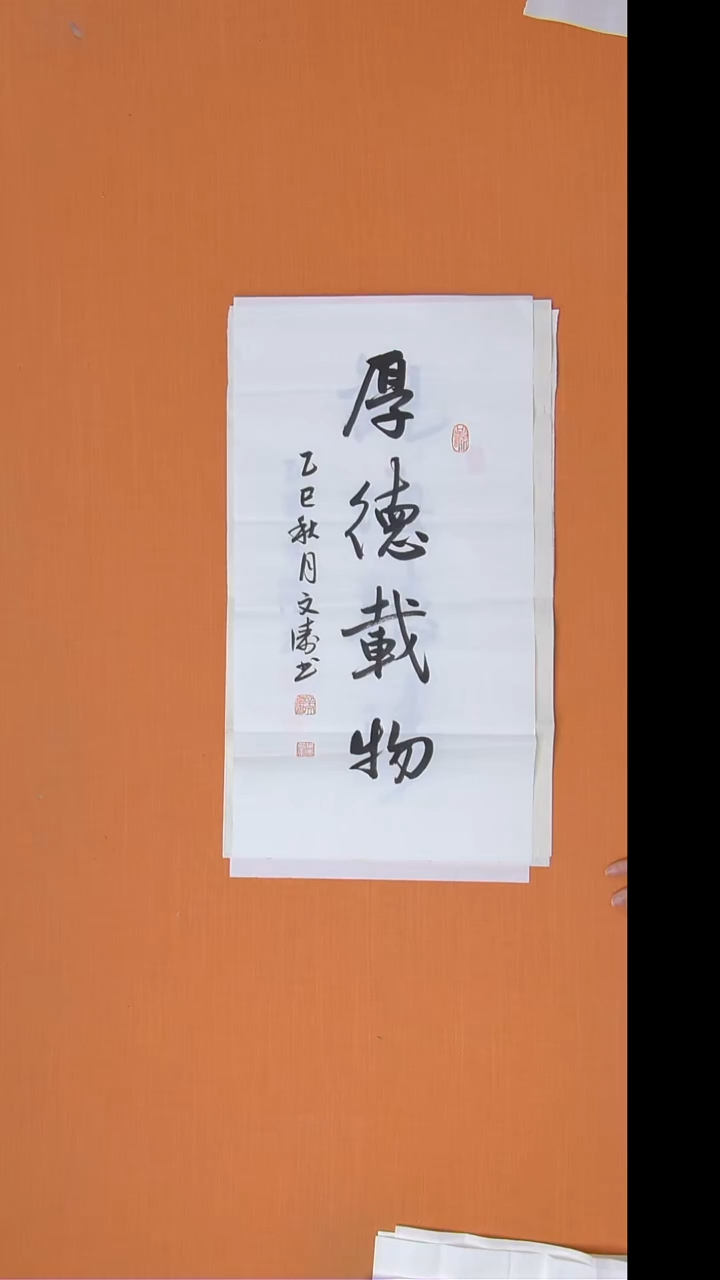 厚德載物
乙巳秋月文涛书